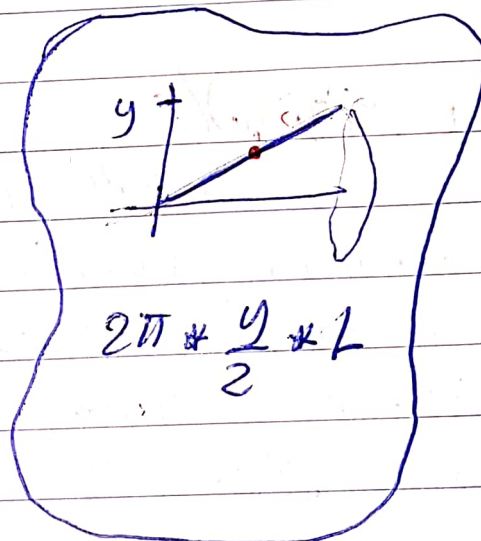 y
2π * y/2 * L